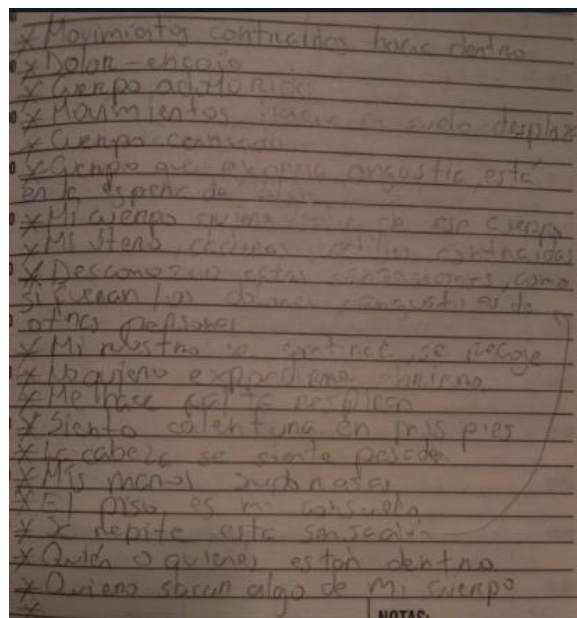 * Movimientos contraidos hacia dentro
* Dolor-encojo
* Cuerpo adolorido
* Movimientos hacia el suelo desplaz
* Cuerpo cansado
* Cuerpo que expresa angustia, está
en la espera de
* Mi cuerpo quiere salir de ese cuerpo
* Mi utero, caderas, rodillas contraidas
* Desconozco estas sensaciones, como
si fueran los dolores, angustias de
otras personas
* Mi rostro se contrae, se recoge
* No quiero expandirme, abrirme
* Me hace falta respirar
* Siento calentura en mis pies
* La cabeza se siente pesada
* Mis manos sudorosas
* El piso es mi consuelo
* Se repite esta sensación
* Quién o quienes están dentro
* Quieren sacar algo de mi cuerpo
*
NOTAS: